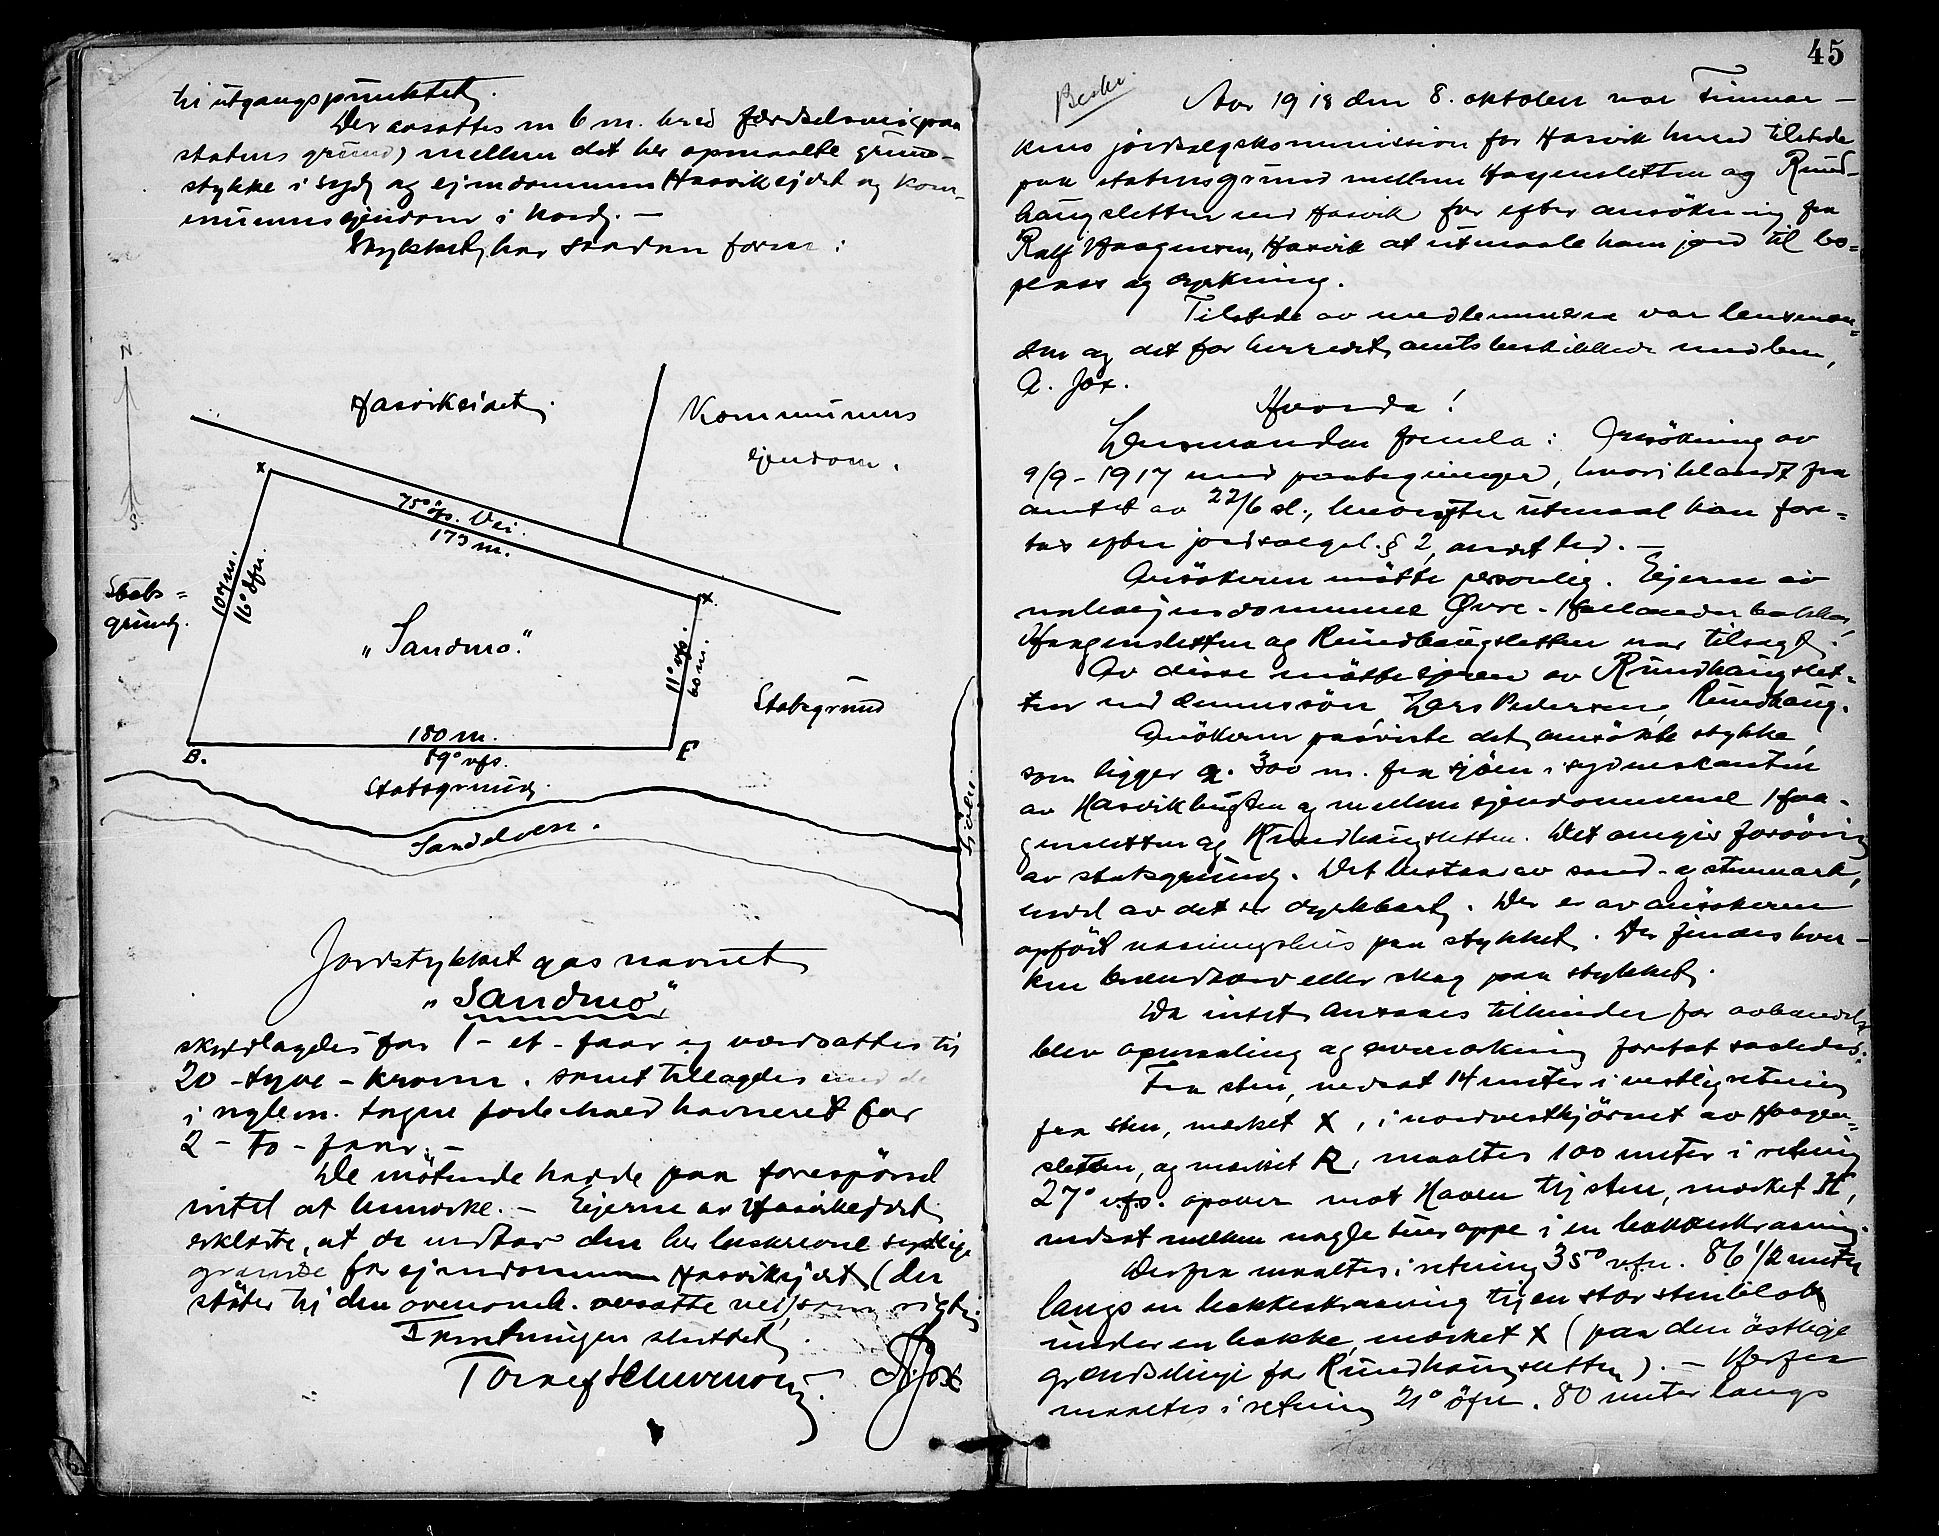 til utgangspunktet.
Der avsattes en 6 m. bred færdselsvei (paa
statens grund) mellem det her opmaalte grund-
stykke i syd og ejendommen Hasvikeidet og Kom-
munens ejendom i nord. —
Stykket har saadan form:
N
S.
Hasvikeidet.
Kommunens
ejendom.
75° øfs. Vei.
173 m.
x
x
107 m.
16° øfn.
Stats=
grund.
„Sandmo."
11° vfs.
60 m.
Statsgrund
180 m.
B.
E
89° vfs.
Statsgrund.
Sandelven.
Sjøen
Jordstykket gas navnet
„Sandmo"
skyldlagdes for 1 - et - øre og værdsattes til
20 - tyve - kroner. samt tillagdes
i nylem. Havneret for
2 - to - faar. —
De møtende hadde paa forespørsel
intet at bemerke. — Eieren av Hasvikeidet
erklærte, at de vedtar den her beskrevne sydlige
grænse for ejendommen Hasvikejdet (der
støter til den ovennævnte avsatte vei) som rigtig.
Forretningen sluttet.
A Fox
45
Beskr.
Aar 1918 den 8. oktober var Finmar-
kens jordsalgskommission for Hasvik herred tilstede
paa statens grund mellem Haagensletten og Rund-
haugsletten ved Hasvik for efter ansøkning fra
Ralf Haagensen, Hasvik at utmaale ham jord til bo-
plass og dyrkning.
Tilstede av medlemmerne var lensman=
den og det for herredet amtsbeskikkede medlem,
A. Fox.
Hvorda!
Lensmanden fremla: Ansøkning av
9/9 - 1917 med paategninger, hvoriblandt fra
amtet av 22/6 d.a., hvorefter utmaal kan fore=
tas efter jordsalgsl. § 2, andet led. —
Ansøkeren møtte personlig. Eierne av
naboejendommene Øvre-Hallenderbakken,
Haagensletten og Rundhaugsletten var tilsagt.
Av disse møtte ejeren av Rundhaugslet=
ten ved dennes søn, Lars Pedersen, Rundhaug.
Ansøkeren paaviste det ansøkte stykke,
som ligger ca. 300 m. fra sjøen i sydøstkanten
av Hasvikbugten og mellem ejendommene Haa-
gensletten og Rundhaugsletten. Det angir forøvrig
av statsgrund. Det bestaar av sand- og stenmark,
endel av det er dyrkbart. Der er av ansøkeren
opført vaaningshus paa stykket. Der findes hver-
ken brændtorv eller skog paa stykket.
Da intet ansaaes tilhinder for avhændelse
blev opmaaling og avmerkning foretat saaledes:
Fra sten, nedsat 14 meter i vestlig retning
fra sten, merket X, i nordvesthjørnet av Haagen=
sletten, og merket R, maaltes 100 meter i retning
27° v.f.s. opover mot Haaen til sten, merket H,
nedsat mellem nogle tuer oppe i en bakkeskraaning.
Derfra maaltes i retning 35° v.f.n. 86 1/2 meter
langs en bakkeskraaning til en stor stenblok
under en bakke, merket X (paa den østlige
grændselinje for Rundhaugsletten). — Herfra
maaltes i retning 21° øfn. 80 meter langs